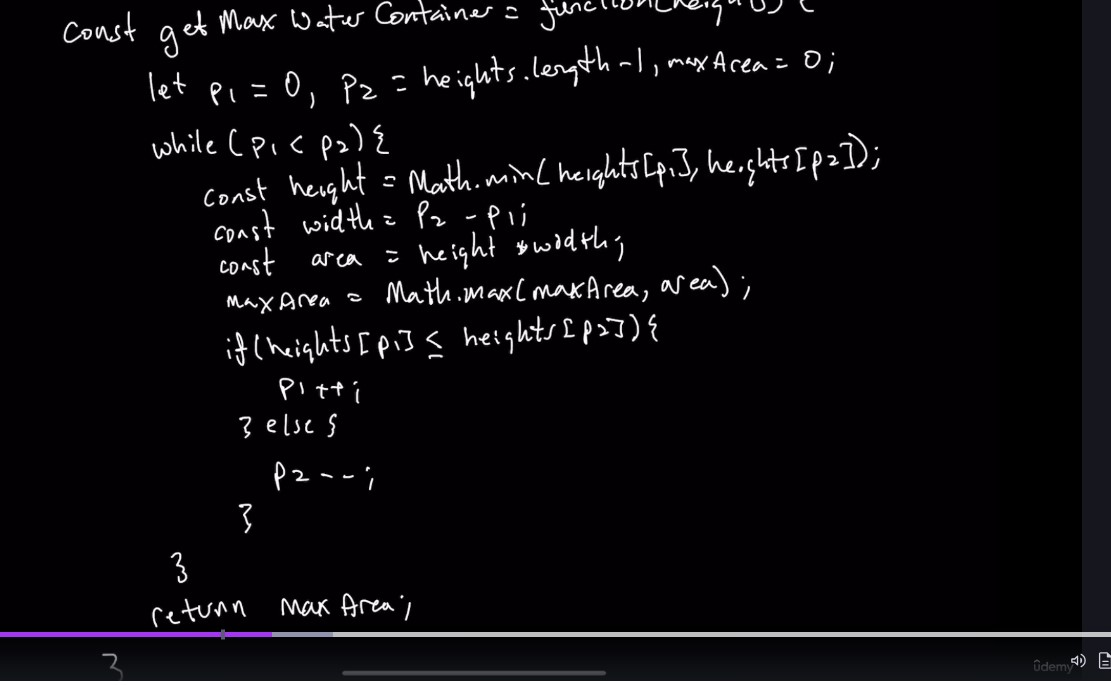 const get Max Water Container = function(heights) {
let p1 = 0, p2 = heights.length-1, maxArea = 0;
while (p1 < p2) {
const height = Math.min(heights[p1], heights[p2]);
const width = p2 - p1;
const area = height * width;
maxArea = Math.max(maxArea, area);
if(heights[p1] ≤ heights[p2]){
p1++;
} else {
p2--;
}
}
return maxArea;
}
ûdemy